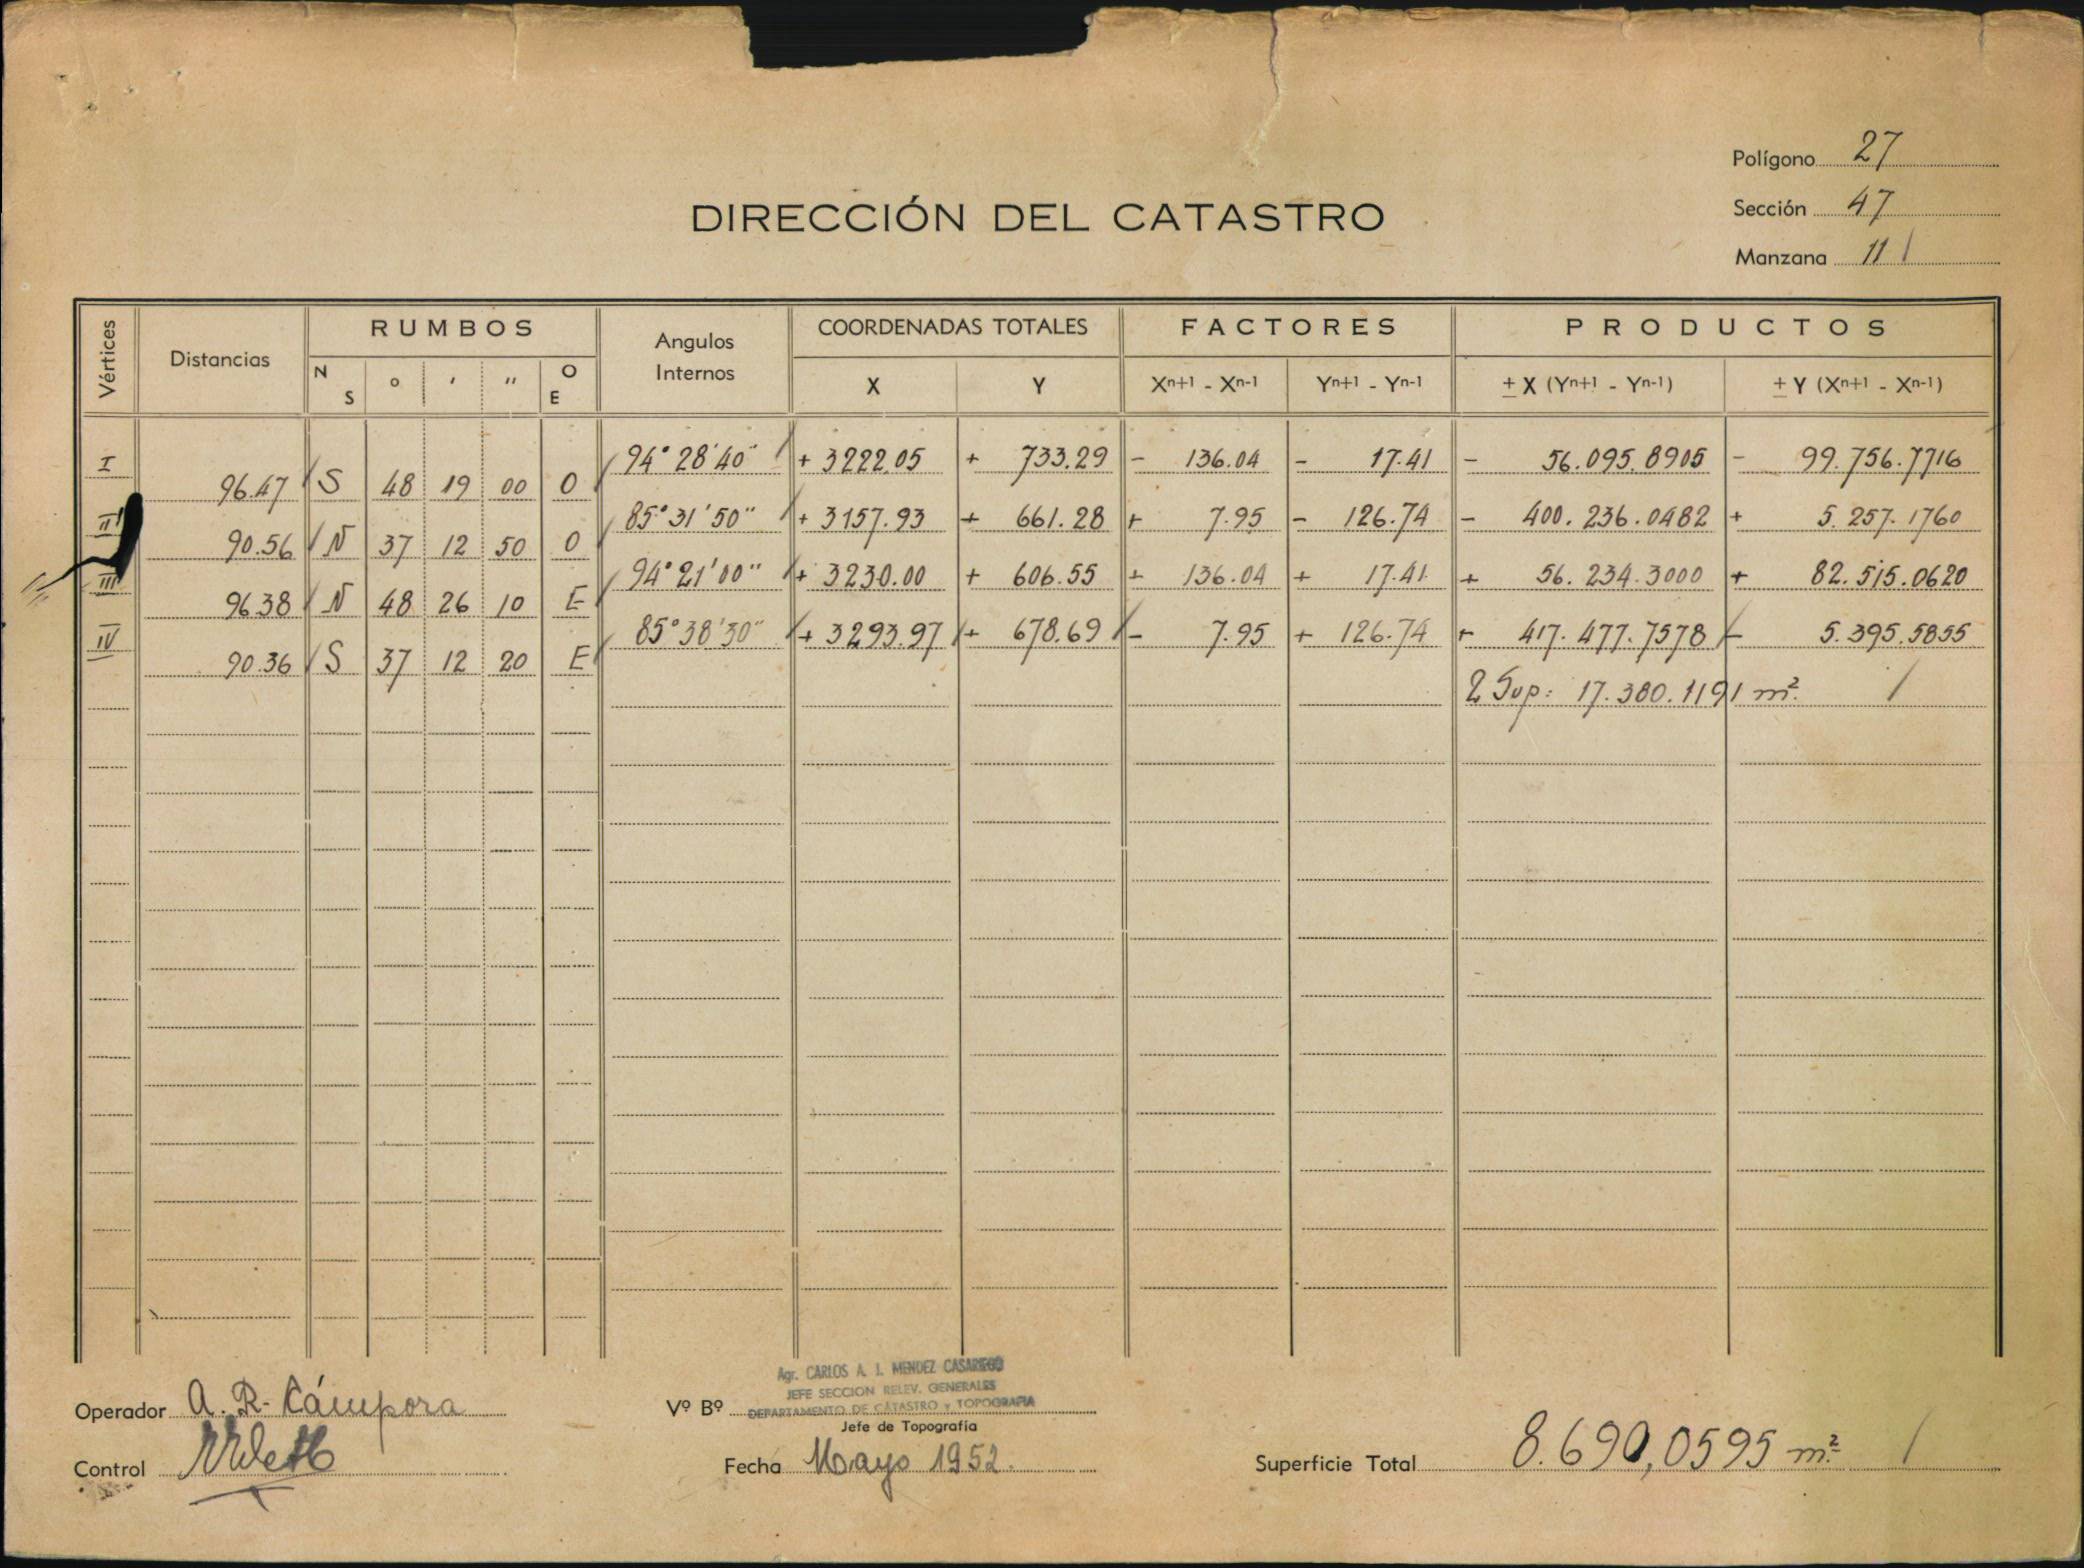 Polígono 27
Sección 47
Manzana 11
DIRECCIÓN DEL CATASTRO
Vértices Distancias RUMBOS Angulos Internos COORDENADAS TOTALES FACTORES PRODUCTOS
N S ° ' " O E X Y Xn+1 - Xn-1 Yn+1 - Yn-1 ± X (Yn+1 - Yn-1) ± Y (Xn+1 - Xn-1)
I 94° 28' 40" + 3222.05 + 733.29 - 136.04 - 17.41 - 56.095.8905 - 99.756.7716
96.47 S 48 19 00 O
II 85° 31' 50" + 3157.93 + 661.28 + 7.95 - 126.74 - 400.236.0482 + 5.257.1760
90.56 N 37 12 50 O
III 94° 21' 00" + 3230.00 + 606.55 + 136.04 + 17.41 + 56.234.3000 + 82.515.0620
96.38 N 48 26 10 E
IV 85° 38' 30" + 3293.97 + 678.69 - 7.95 + 126.74 + 417.477.7578 - 5.395.5855
90.36 S 37 12 20 E
2 Sup: 17.380.1191 m².
Agr. CARLOS A. J. MENDEZ CASARIEGO
JEFE SECCION RELEV. GENERALES
DEPARTAMENTO DE CATASTRO y TOPOGRAFIA
Operador A. R. Cámpora Vº Bº
Jefe de Topografía
Control Fecha Mayo 1952. Superficie Total 8.690,0595 m²